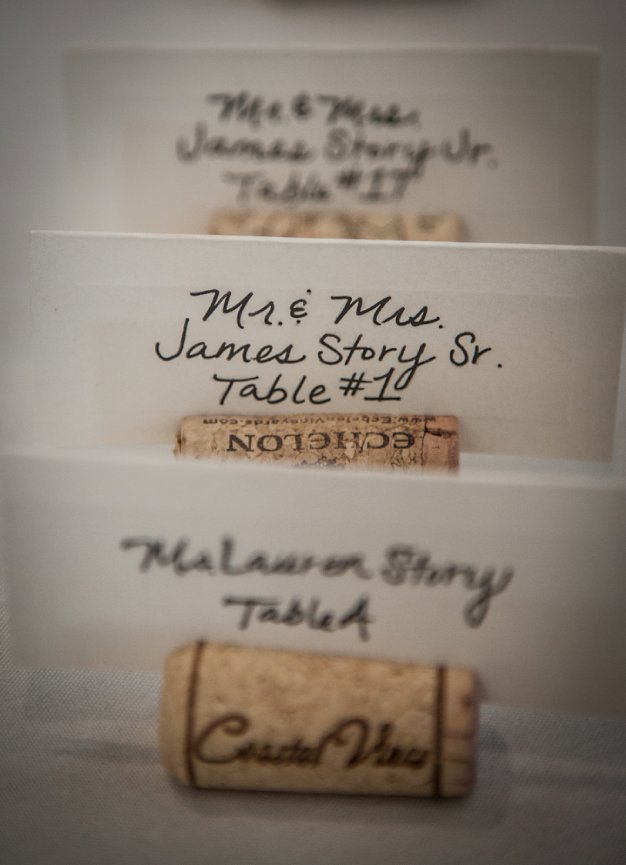 Mr. & Mrs.
James Story Jr.
Table #17
Mr. & Mrs.
James Story Sr.
Table #1
www.EchelonVineyards.com
ECHELON
Ms Lauren Story
Table A
Coastal View